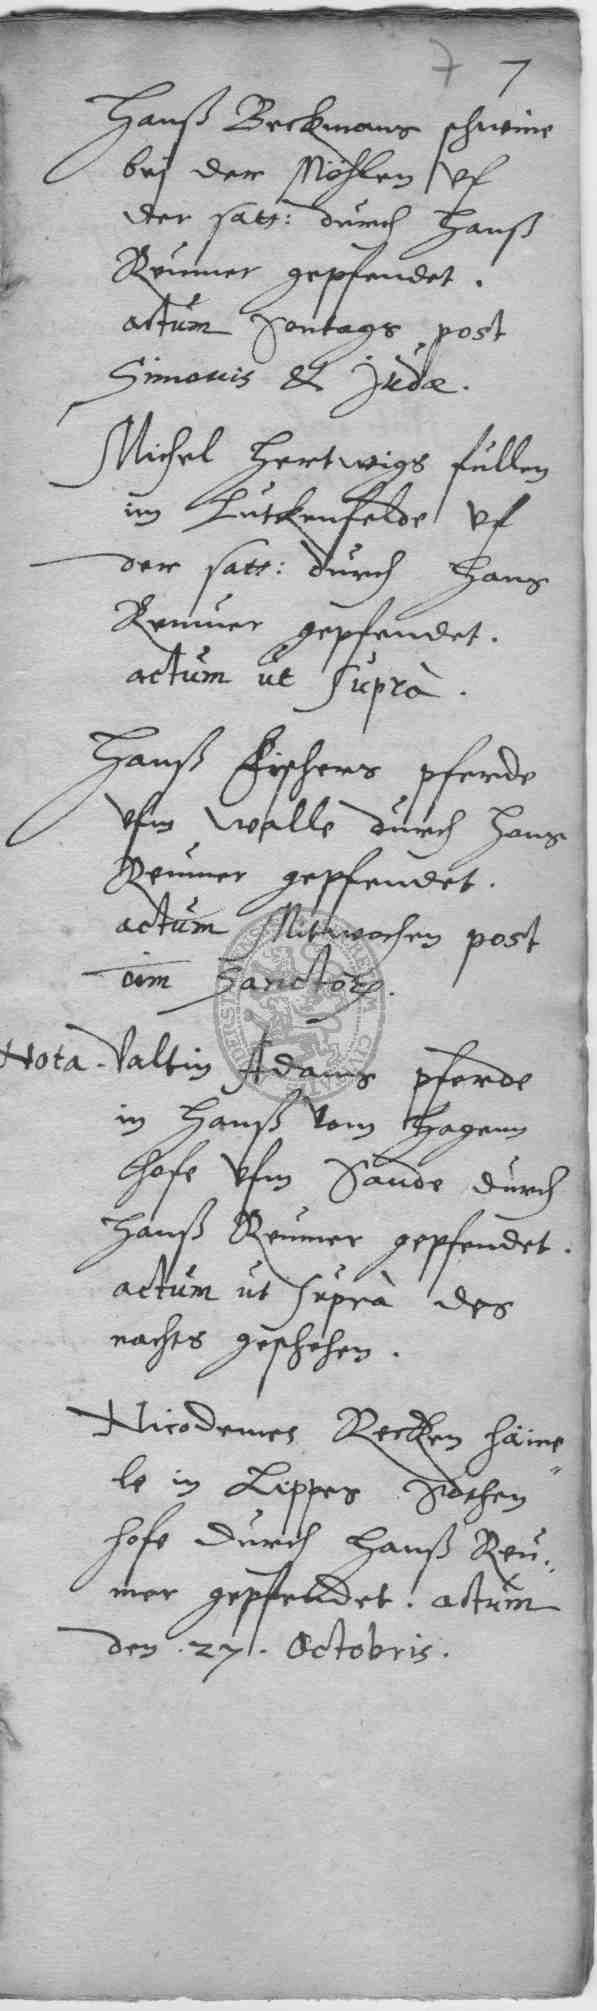 7 7
Hanß Beckmans schweine
bej der Möhlen vf
der satt: durch Hanß
Reumer gepfendet.
actum Sontags post
Simonis & Judæ.
Michel Hertwigs füllen
im Lutkenfelde vf
der satt: durch Hans
Reumer gepfendet.
actum ut suprà.
Hanß Fischers pferde
vfm Walle durch Hans
Reumer gepfendet.
actum Mitwochen post
oim Sanctor.
Nota. Valtin Adams pferde
in Hanß vom Hagenn
hofe vfm Sande durch
Hanß Reumer gepfendet.
actum ut suprà des
nachts geschehen.
Nicodemes Recken
le in Lippes
hofe durch Hanß Reu-
mer gepfendet. actum
den .27. Octobris.